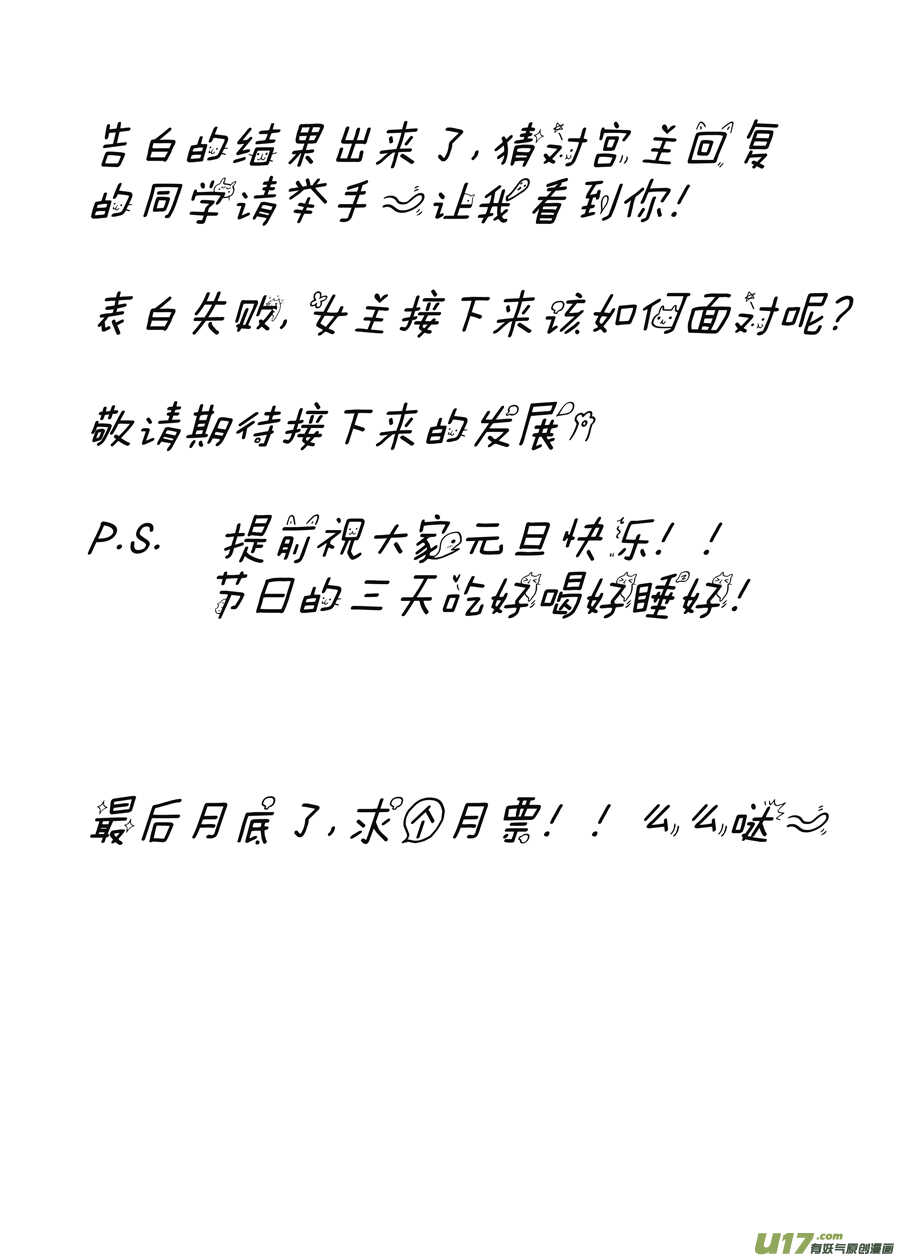 告白的结果出来了，猜对宫主回复
的同学请举手～让我看到你！
表白失败，女主接下来该如何面对呢？
敬请期待接下来的发展
P.S. 提前祝大家元旦快乐！！
节日的三天吃好喝好睡好！
最后月底了，求个月票！！么么哒～
U17.com
有妖气原创漫画